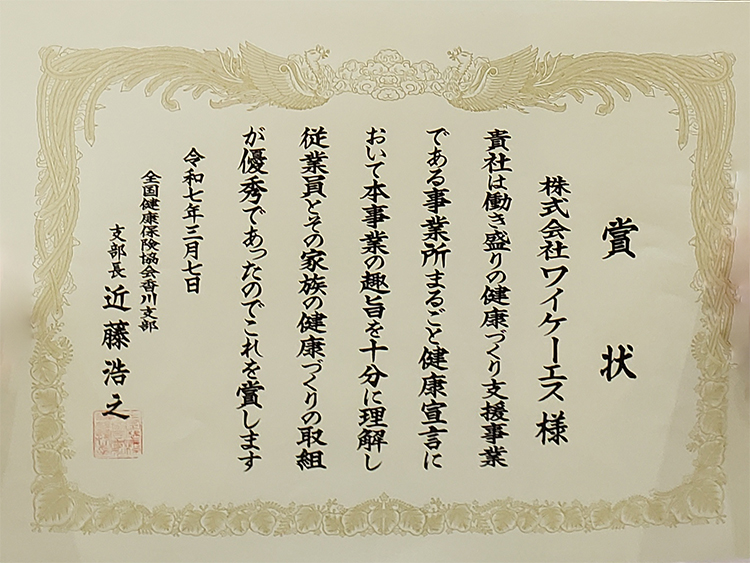 賞状
株式会社ワイケーエス様
貴社は働き盛りの健康づくり支援事業
である事業所まるごと健康宣言に
おいて本事業の趣旨を十分に理解し
従業員とその家族の健康づくりの取組
が優秀であったのでこれを賞します
令和七年三月七日
全国健康保険協会香川支部
支部長 近藤浩之